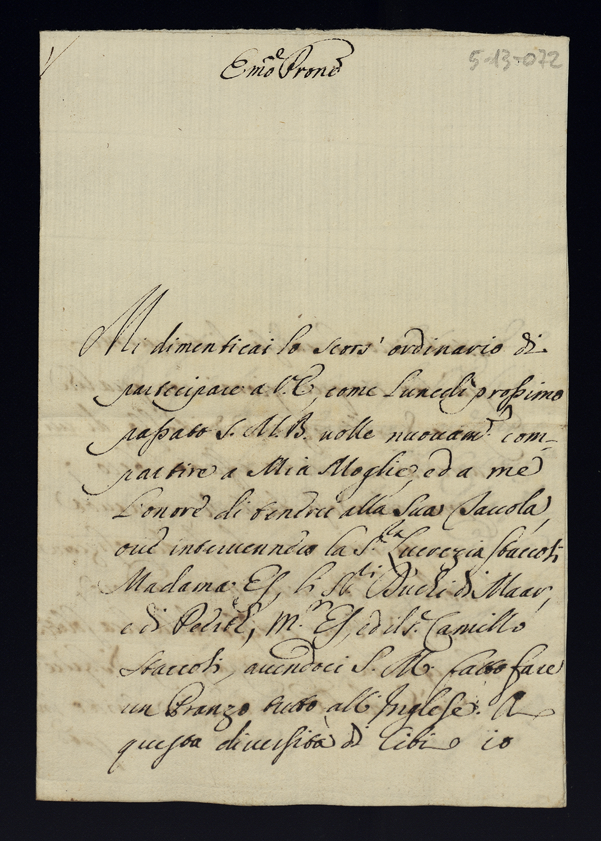 5-13-072
Emo Prone
Mi dimenticai lo scors' ordinario di
partecipare a V. E., come Lunedì prossimo
passato S. M. B. volle nuovam.e com-
partire a Mia Moglie, ed a me
L'onore di tenerci alla Sua Tavola,
ove intervennero la S.ra Lucrezia Staccoli
Madama Es, li SS.ri Duchi di Maar,
e di M.r Es, ed il S.r Camillo
Staccoli, avendoci S. M. fatto fare
un Pranzo tutto all' Inglese. A
questa diversità di Cibi io